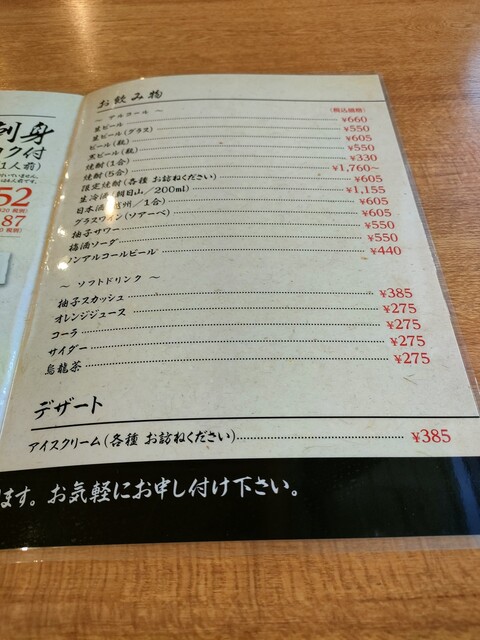 刺身
ク付
(1人前)
52
87
お飲み物
〜 アルコール 〜 (税込価格)
生ビール ¥660
生ビール(グラス) ¥550
ビール(瓶) ¥605
黒ビール(瓶) ¥550
焼酎(1合) ¥330
焼酎(5合) ¥1,760〜
限定焼酎(各種 お訪ねください) ¥605
生冷酒(朝日山/200ml) ¥1,155
日本酒(越州/1合) ¥605
グラスワイン(ソアーベ) ¥605
柚子サワー ¥550
梅酒ソーダ ¥550
ノンアルコールビール ¥440
〜 ソフトドリンク 〜
柚子スカッシュ ¥385
オレンジジュース ¥275
コーラ ¥275
サイダー ¥275
烏龍茶 ¥275
デザート
アイスクリーム(各種 お訪ねください) ¥385
ます。お気軽にお申し付け下さい。